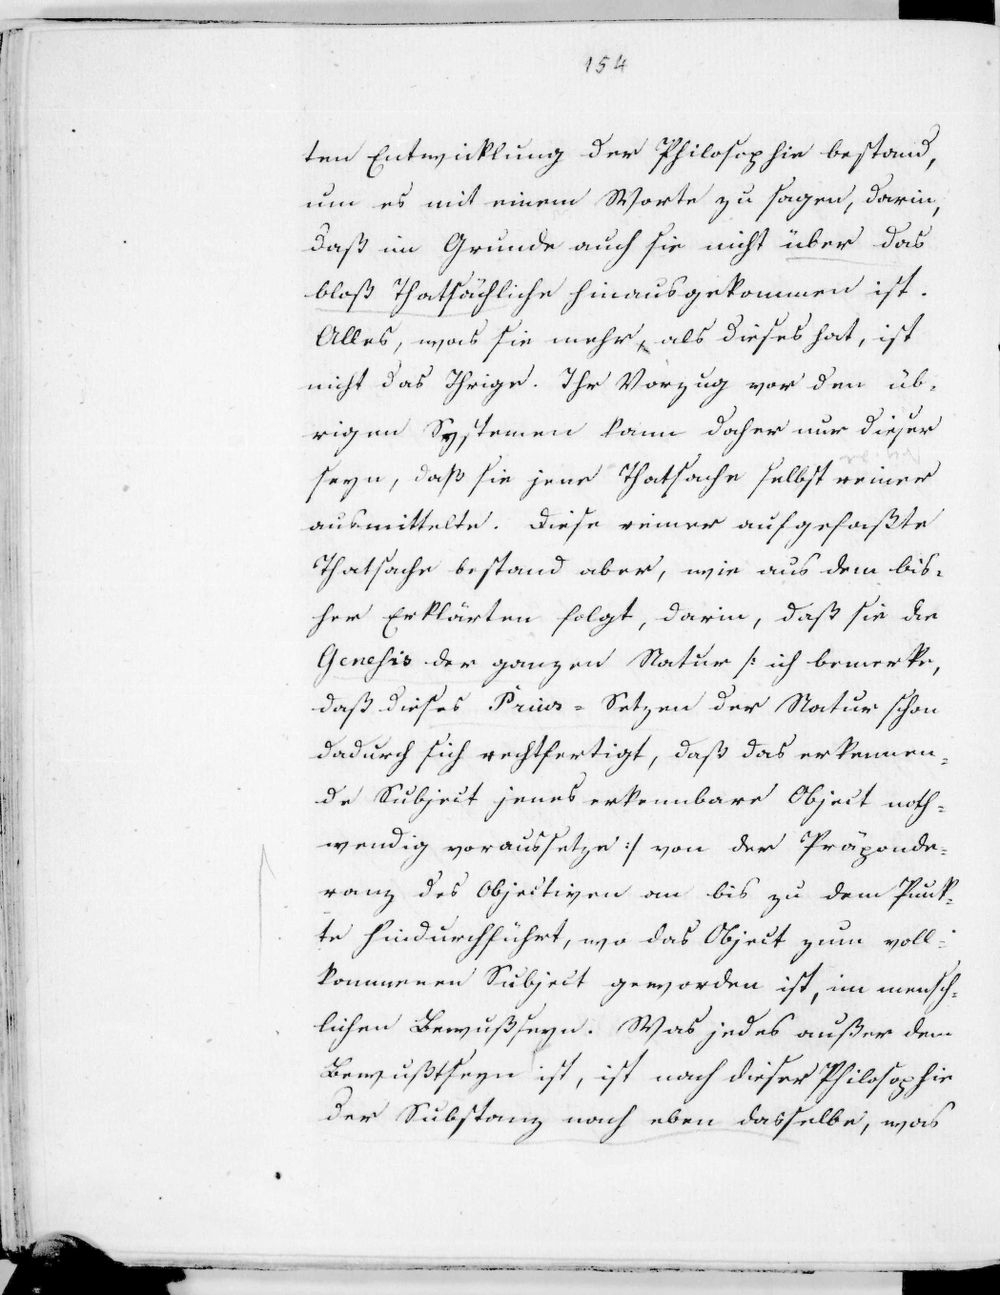 154
ten Entwicklung der Philosophie bestand,
um es mit einem Worte zu sagen, darin,
daß im Grunde auch sie nicht über das
bloß Thatsächliche hinausgekommen ist.
Alles, was sie mehr, als dieses hat, ist
nicht das Ihrige. Ihr Vorzug vor den üb-
rigen Systemen kann daher nur dieser
seyn, daß sie jene Thatsache selbst reiner
ausmittelte. Diese reiner aufgefaßte
Thatsache bestand aber, wie aus dem bis-
her Erklärten folgt, darin, daß sie die
Genesis der ganzen Natur /: ich bemerke,
daß dieses Prius-Setzen der Natur schon
dadurch sich rechtfertigt, daß das erkennen-
de Subject jenes erkennbare Object noth-
wendig voraussetze :/ von der Präponde-
ranz des Objectiven an bis zu dem Punk-
te hindurchführt, wo das Object zum voll-
kommenen Subject geworden ist, im mensch-
lichen Bewußtseyn. Was jedes außer dem
Bewußtseyn ist, ist nach dieser Philosophie
der Substanz nach eben dasselbe, was